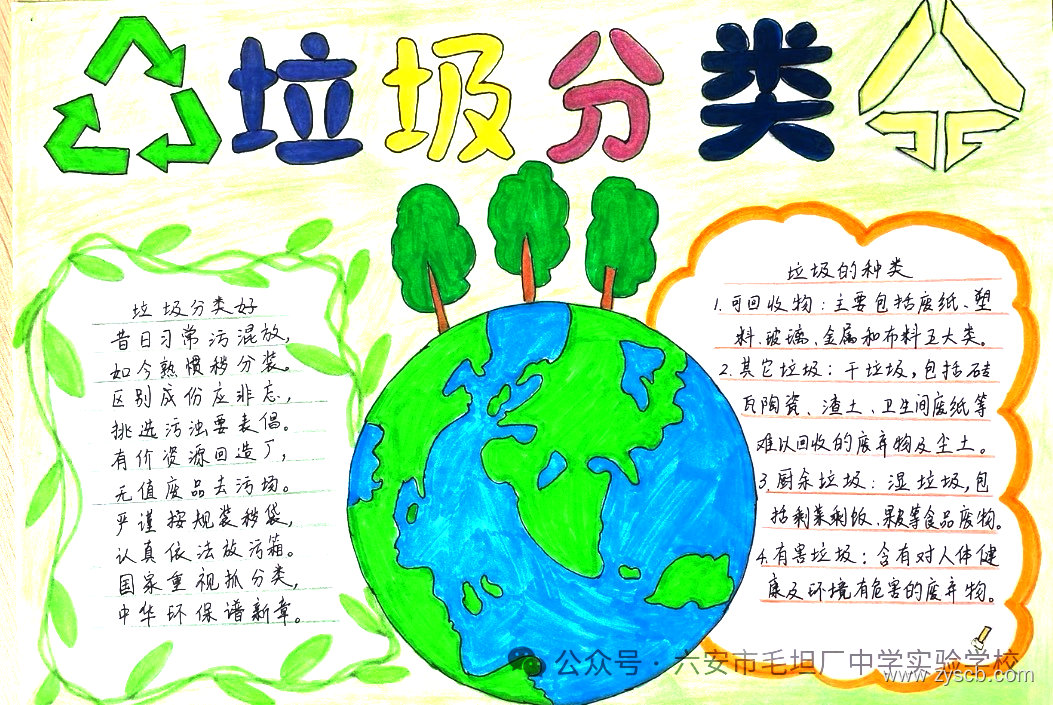 垃圾分类
垃圾分类好
昔日习常污混放，
如今熟惯秽分装。
区别成份应非忘，
挑选污浊要表倡。
有价资源回造厂，
无值废品去污场。
严谨按规装秽袋，
认真依法放污箱。
国家重视抓分类，
中华环保谱新章。
垃圾的种类
1.可回收物：主要包括废纸、塑
料、玻璃、金属和布料五大类。
2.其它垃圾：干垃圾，包括砖
瓦陶瓷、渣土、卫生间废纸等
难以回收的废弃物及尘土。
3.厨余垃圾：湿垃圾，包
括剩菜剩饭、果皮等食品废物。
4.有害垃圾：含有对人体健
康及环境有危害的废弃物。
公众号·六安市毛坦厂中学实验学校
www.zyscb.com